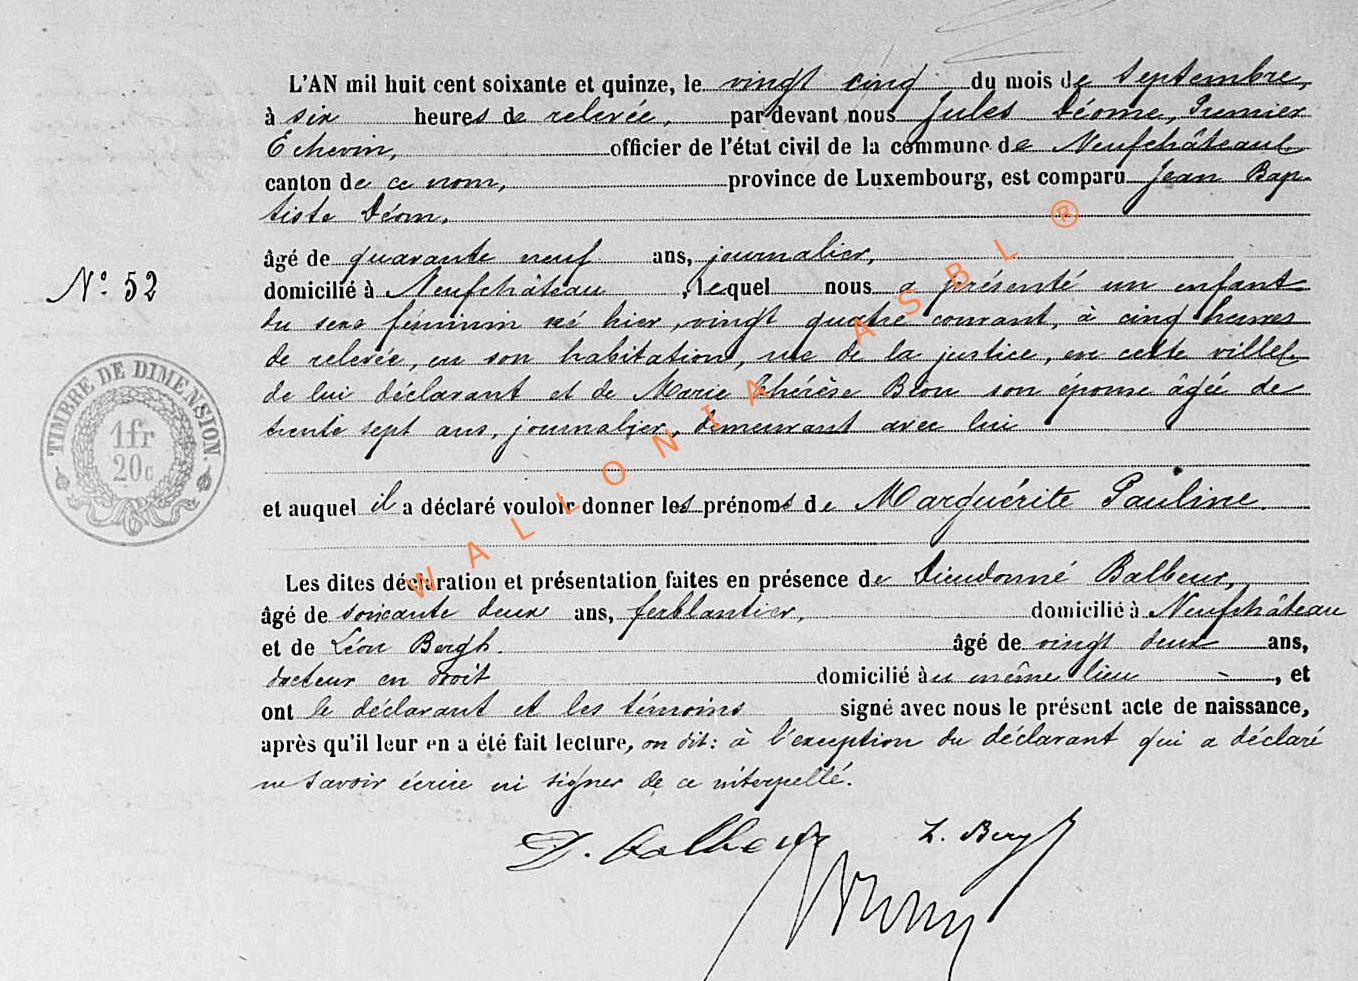 L'AN mil huit cent soixante et quinze, le vingt cinq du mois de Septembre,
à six heures de relevée, par devant nous Jules Déome, Premier
Echevin, officier de l'état civil de la commune de Neufchâteau
canton de ce nom, province de Luxembourg, est comparu Jean Bap-
tiste Déom,
âgé de quarante neuf ans, journalier,
N° 52
domicilié à Neufchâteau, lequel nous a présenté un enfant
du sexe féminin né hier, vingt quatre courant, à cinq heures
de relevée, en son habitation, rue de la justice, en cette ville
de lui déclarant et de Marie Thérèse son épouse âgée de
trente sept ans, journalier, demeurant avec lui
TIMBRE DE DIMENSION.
1fr
20c
et auquel il a déclaré vouloir donner les prénoms de Marguérite Pauline.
Les dites déclaration et présentation faites en présence de Dieudonné Balbeur,
âgé de soixante deux ans, ferblantier, domicilié à Neufchâteau
et de Léon Bergh. âgé de vingt deux ans,
docteur en droit domicilié au même lieu, et
ont le déclarant et les témoins signé avec nous le présent acte de naissance,
après qu'il leur en a été fait lecture, on dit: à l'exception du déclarant qui a déclaré
ne savoir écrire ni signer de ce interpellé.
D. Balbeur L. Bergh
WALLONIA ASBL ®